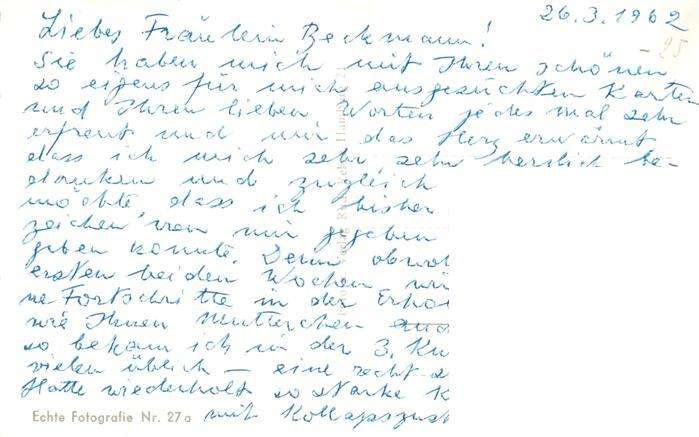 26.3.1962
Liebes Fräulein Beckmann!
Sie haben mich mit Ihren schönen
so eigens für mich ausgesuchten Karten
und Ihren lieben Worten jedes mal sehr
erfreut und mir das Herz erwärmt
dass ich mich sehr sehr herzlich be-
danken und zugleich
möchte dass ich bisher
zeichen von mir gegeben
geben konnte. Denn obwo
ersten beiden Wochen
ne Fortschritte in der Erho
wie Ihnen Mutterchen
so bekam ich in der 3. Ku
vielen üblich – eine recht
Hatte wiederholt so starke K
Echte Fotografie Nr. 27a mit Kollapszust